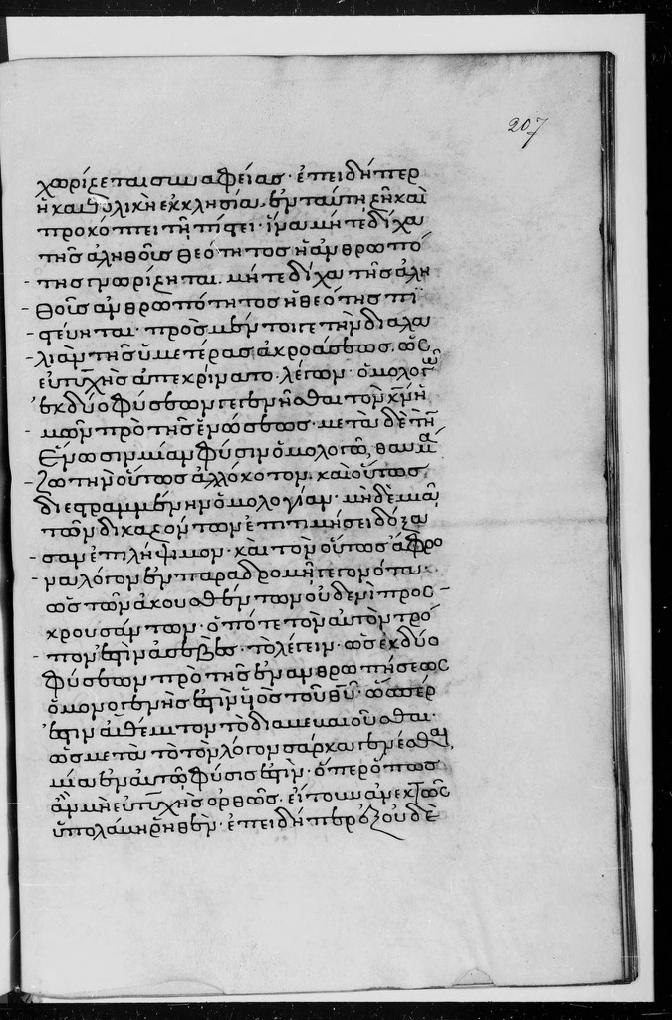 207
χωρίζεται συναφείας· ἐπειδήπερ
ἡ καθολικὴ εκκλησία, ἐν ταύτῃ ζῇ καὶ
προκόπτει τῇ πίστει· ἵνα μήτε δίχα
τῆς ἀληθοῦς θεότητος ἡ ἀνθρωπό
της γνωρίζηται. μήτε δίχα τῆς ἀλη
θοῦς ἀνθρωπότητος ἡ θεότης πι
στεύηται· πρὸς μέν τοι γε τὴν διαλα
λιὰν τῆς ὑμετέρας ἀκροάσεως, ὡς
εὐτυχὴς ἀπεκρίνατο. λέγων· ὁμολογῶ
ἐκ δύο φύσεων γεγενῆσθαι τὸν κν̄ ἡ
μῶν πρὸ τῆς ἑνώσεως· μετὰ δὲ τὴν
ἕνωσιν μίαν φύσιν ὁμολογῶ, θαυμά
ζω τὴν οὕτως ἀλλόκοτον. καὶ οὕτως
διεστραμμένην ὁμολογίαν· μηδεμιᾷ
τῶν δικαζόντων ἐπιτιμήσει δόξα
σαν ἐπιλήψιμον· καὶ τὸν οὕτως ἄφρο
να λόγον ἐν παραδρομῇ γεγονότα·
ὡς τῶν ἀκουσθέντων οὐδενὶ προς
κρουσάντων. ὁπότε τὸν αὐτὸν τρό
πον ἐστὶν ἀσεβὲς. τὸ λέγειν. ὡς ἐκ δύο
φύσεων πρὸ τῆς ἐνανθρωπήσεως
ὁ μονογενής ἐστιν υἱὸς τοῦ θῡ· ὥσπερ
ἐστιν ἀθέμιτον τὸ διαβεβαιοῦσθαι·
ὡς μετὰ τὸ τὸν λόγον σάρκα γενέσθαι,
μία ἐν αὐτῷ φύσις ἐστὶν· ὅπερ ὅπως
ἂν μὴ εὐτυχὴς ὀρθῶς. εἴτουν ἀνεκτῶς
ὑπολάβῃ ῥηθὲν· ἐπειδήπερ ἐξ οὐδε